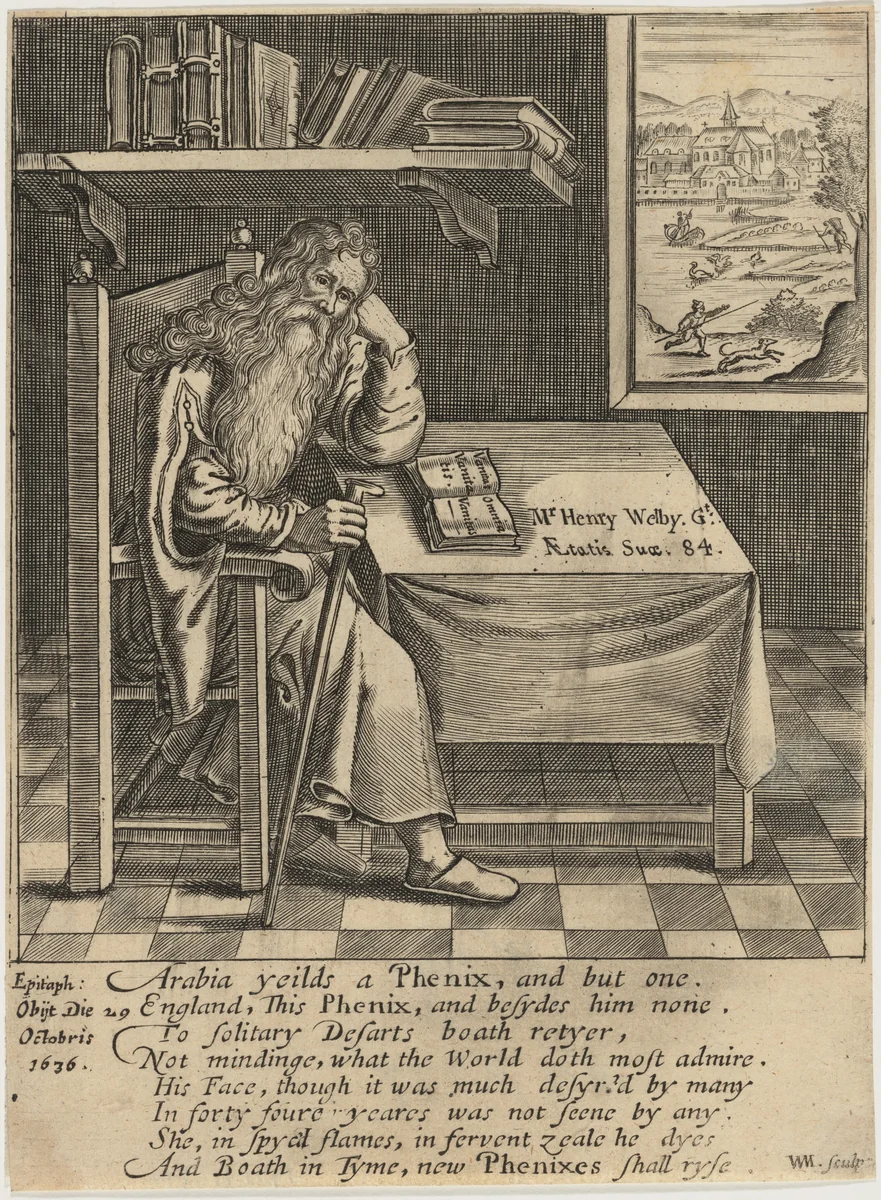 Vanitas
Vanita
tis.
Omnia
Vanitas
Mr Henry Welby. Gt.
Ætatis Suæ. 84.
Epitaph:
Obijt Die 29
Octobris
1636.
Arabia yeilds a Phenix, and but one.
England, This Phenix, and beſydes him none.
To ſolitary Deſarts boath retyer,
Not mindinge, what the World doth moſt admire.
His Face, though it was much deſyr'd by many
In forty foure yeares was not ſeene by any.
She, in ſpyced flames, in fervent zeale he dyes
And Boath in Tyme, new Phenixes ſhall ryſe.
WM. ſculp: